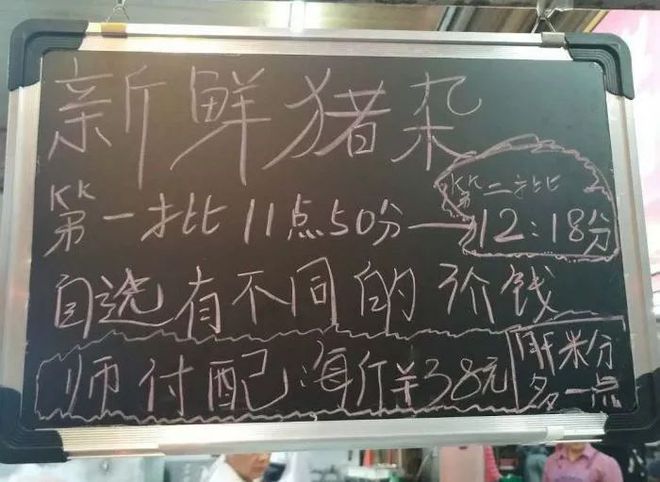 新鲜猪杂
第一批11点50分—
第二批
12:18分
自选有不同的价钱
师付配:每斤¥38元
肝粉
多一点